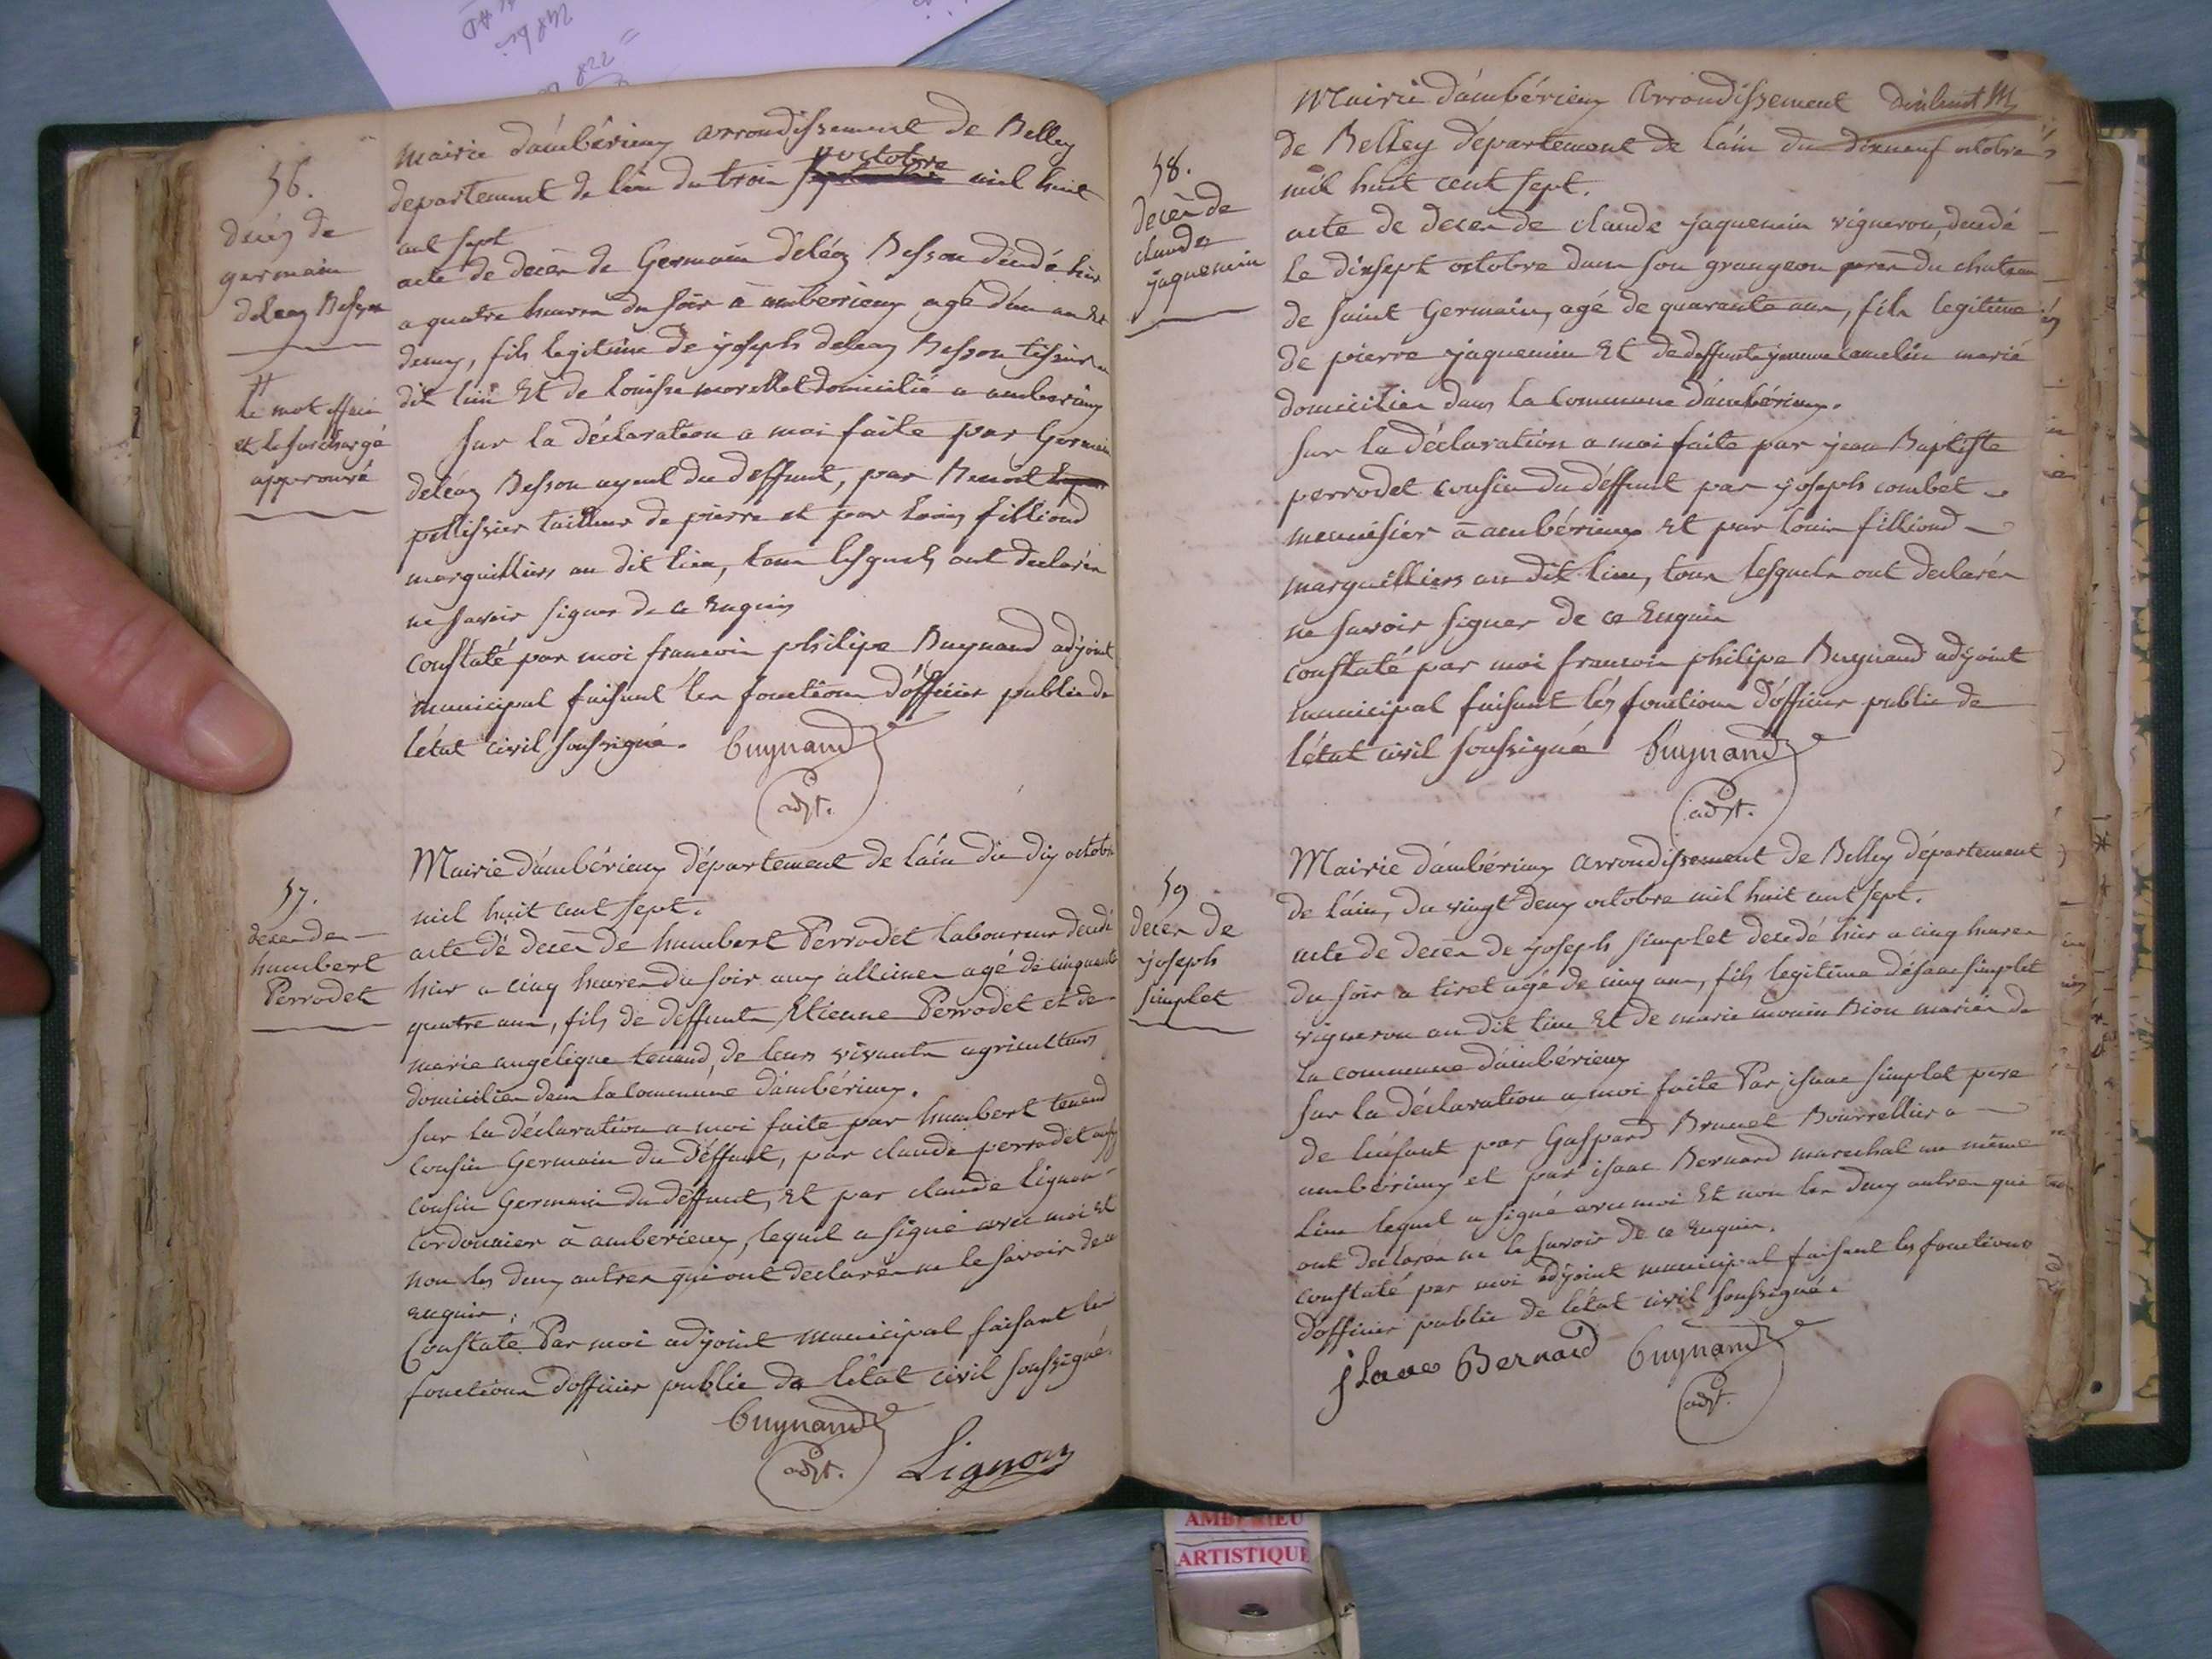 56.
décès de
germain
deleaz Besson
le mot effacé
et le surchargé
approuvé
Mairie d'ambérieux arrondissement de Belley
departement de lain du trois octobre mil huit
cent sept
acte de decès de Germain deléaz Besson décédé hier
a quatre heures du soir à ambérieux agé d'un an et
demy, fils legitime de joseph deleaz Besson tissier au
dit lieu Et de Louise morellet domicilié a amberieux
Sur la déclaration a moi faite par Germain
deléaz Besson ayeul du deffunt, par Benoit
pellissier tailleur de pierre et par Louis filliond
marguilliers au dit lieu, tous lesquels ont declarés
ne savoir signer de ce Enquis
Constaté par moi francois philipe Buynand adjoint
municipal faisant les fonctions d'officier public de
létat civil soussigné. Buynand
adjt.
57.
deces de
humbert
Perrodet
Mairie d'ambérieux département de láin du dix octobre
mil huit cent sept.
acte dé decès de humbert Perrodet laboureur décédé
hier a cinq heures du soir aux allimes agé de cinquante
quatre ans, fils de deffunts Etienne Perrodet et de
marie angelique tenand, de leurs vivants agriculteurs
domiciliés dans la Commune d'ambérieux.
Sur la déclaration a moi faite par humbert tenand
Cousin Germain du déffunt, par claude perrodet aussy
Cousin Germain du deffunt, Et par claude Lignon
Cordonnier à amberieux, lequel a signé avec moi Et
non les deux autres qui ont declarés ne le savoir de ce
enquis.
Constaté Par moi adjoint municipal faisant les
fonctions d'officier public de létat civil soussigné.
Buynand
adjt.
Lignon
58.
decès de
claude
jaquemin
Mairie d'ambérieux arrondissement dixhuit
de Belley département de láin du dixneuf octobre
mil huit cent sept.
acte de decès de claude jaquemin vigneron, décédé
le dixsept octobre dans son grangeon près du chateau
de saint Germain, agé de quarante ans, fils legitime
de pierre jaquemin Et de deffunte jeanne Camelin marié
domicilié dans la Commune d'ambérieux.
Sur la déclaration a moi faite par jean Baptiste
perrodet cousin du déffunt par joseph combet
menuisier à ambérieux Et par louis filliond
marguilliers au dit lieu, tous lesquels ont declarés
ne savoir signer de ce Enquis
constaté par moi francois philipe Buynand adjoint
municipal faisant les fonctions d'officier public de
létat civil soussigné Buynand
adjt.
59
deces de
joseph
simplet
Mairie d'ambérieux arrondissement de Belley département
de láin, du vingt deux octobre mil huit cent sept.
acte de decès de joseph simplet decedé hier a cinq heures
du soir a tiret agé de cinq ans, fils legitime d'ésaac simplet
vigneron au dit lieu Et de marie Bion mariés de
la commune d'ambérieux
Sur la déclaration a moi faite Par isaac simplet pere
de lénfant par Gaspard Brunet Bourrellier a
ambérieux et par isaac Bernard marechal au même
Lieu lequel a signé avec moi Et non les deux autres qui
ont declarés ne le savoir de ce Enquis.
constaté par moi adjoint municipal faisant les fonctions
d'officier public de létat civil soussigné.
isaac Bernard Buynand
adjt.
AMBERIEU
ARTISTIQUE